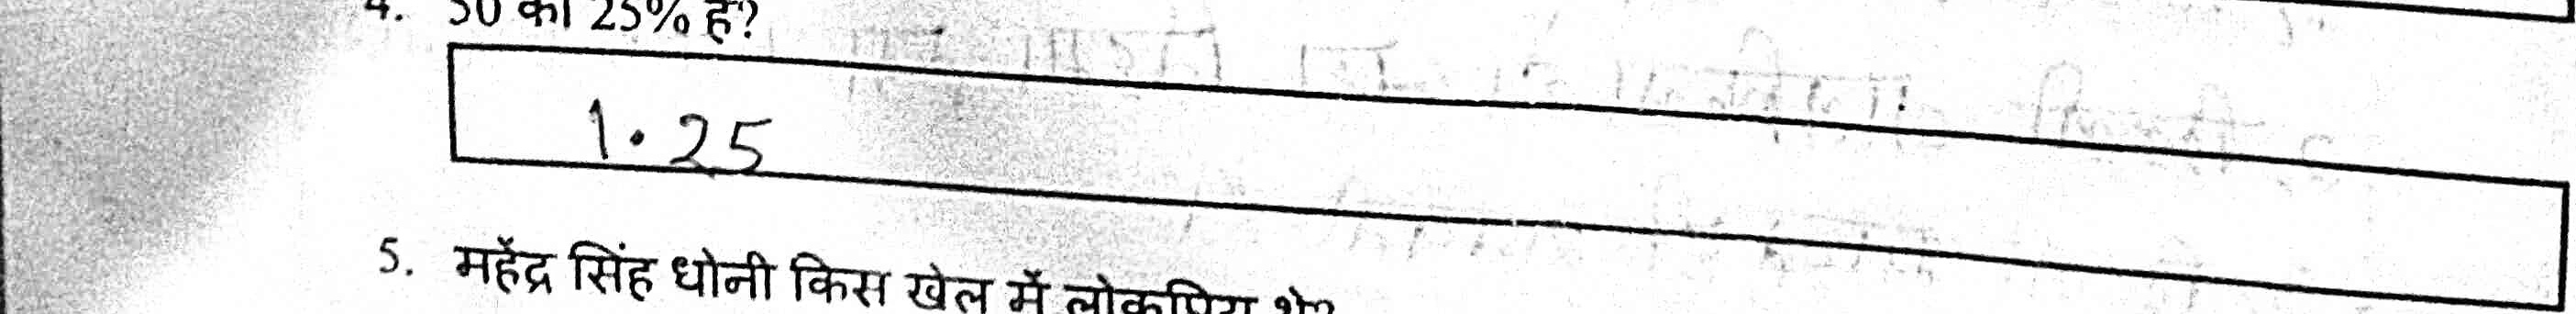 4. 50 का 25% है?
1.25
5. महेंद्र सिंह धोनी किस खेल में लोकप्रिय थे?